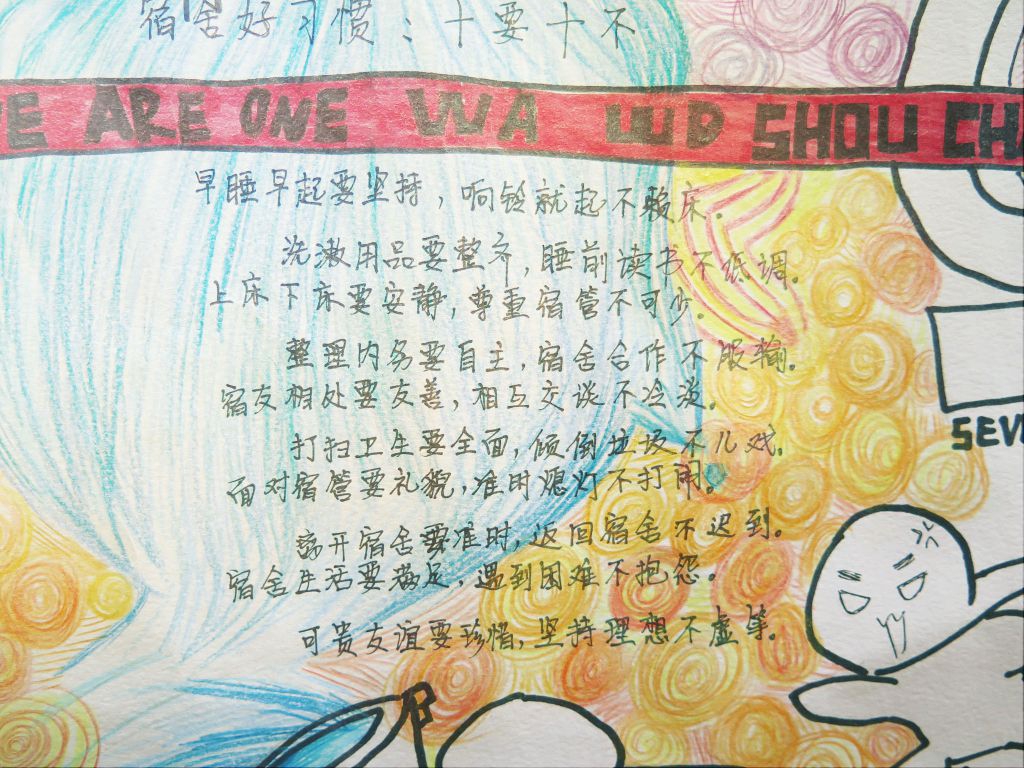 宿舍好习惯：十要十不
E ARE ONE WA WD SHOU CHA
早睡早起要坚持，响铃就起不赖床。
洗漱用品要整齐，睡前读书不低调。
上床下床要安静，尊重宿管不可少。
整理内务要自主，宿舍合作不服输。
宿友相处要友善，相互交谈不冷淡。
打扫卫生要全面，倾倒垃圾不儿戏。
面对宿管要礼貌，准时熄灯不打闹。
离开宿舍要准时，返回宿舍不迟到。
宿舍生活要满足，遇到困难不抱怨。
可贵友谊要珍惜，坚持理想不虚等。
SEV